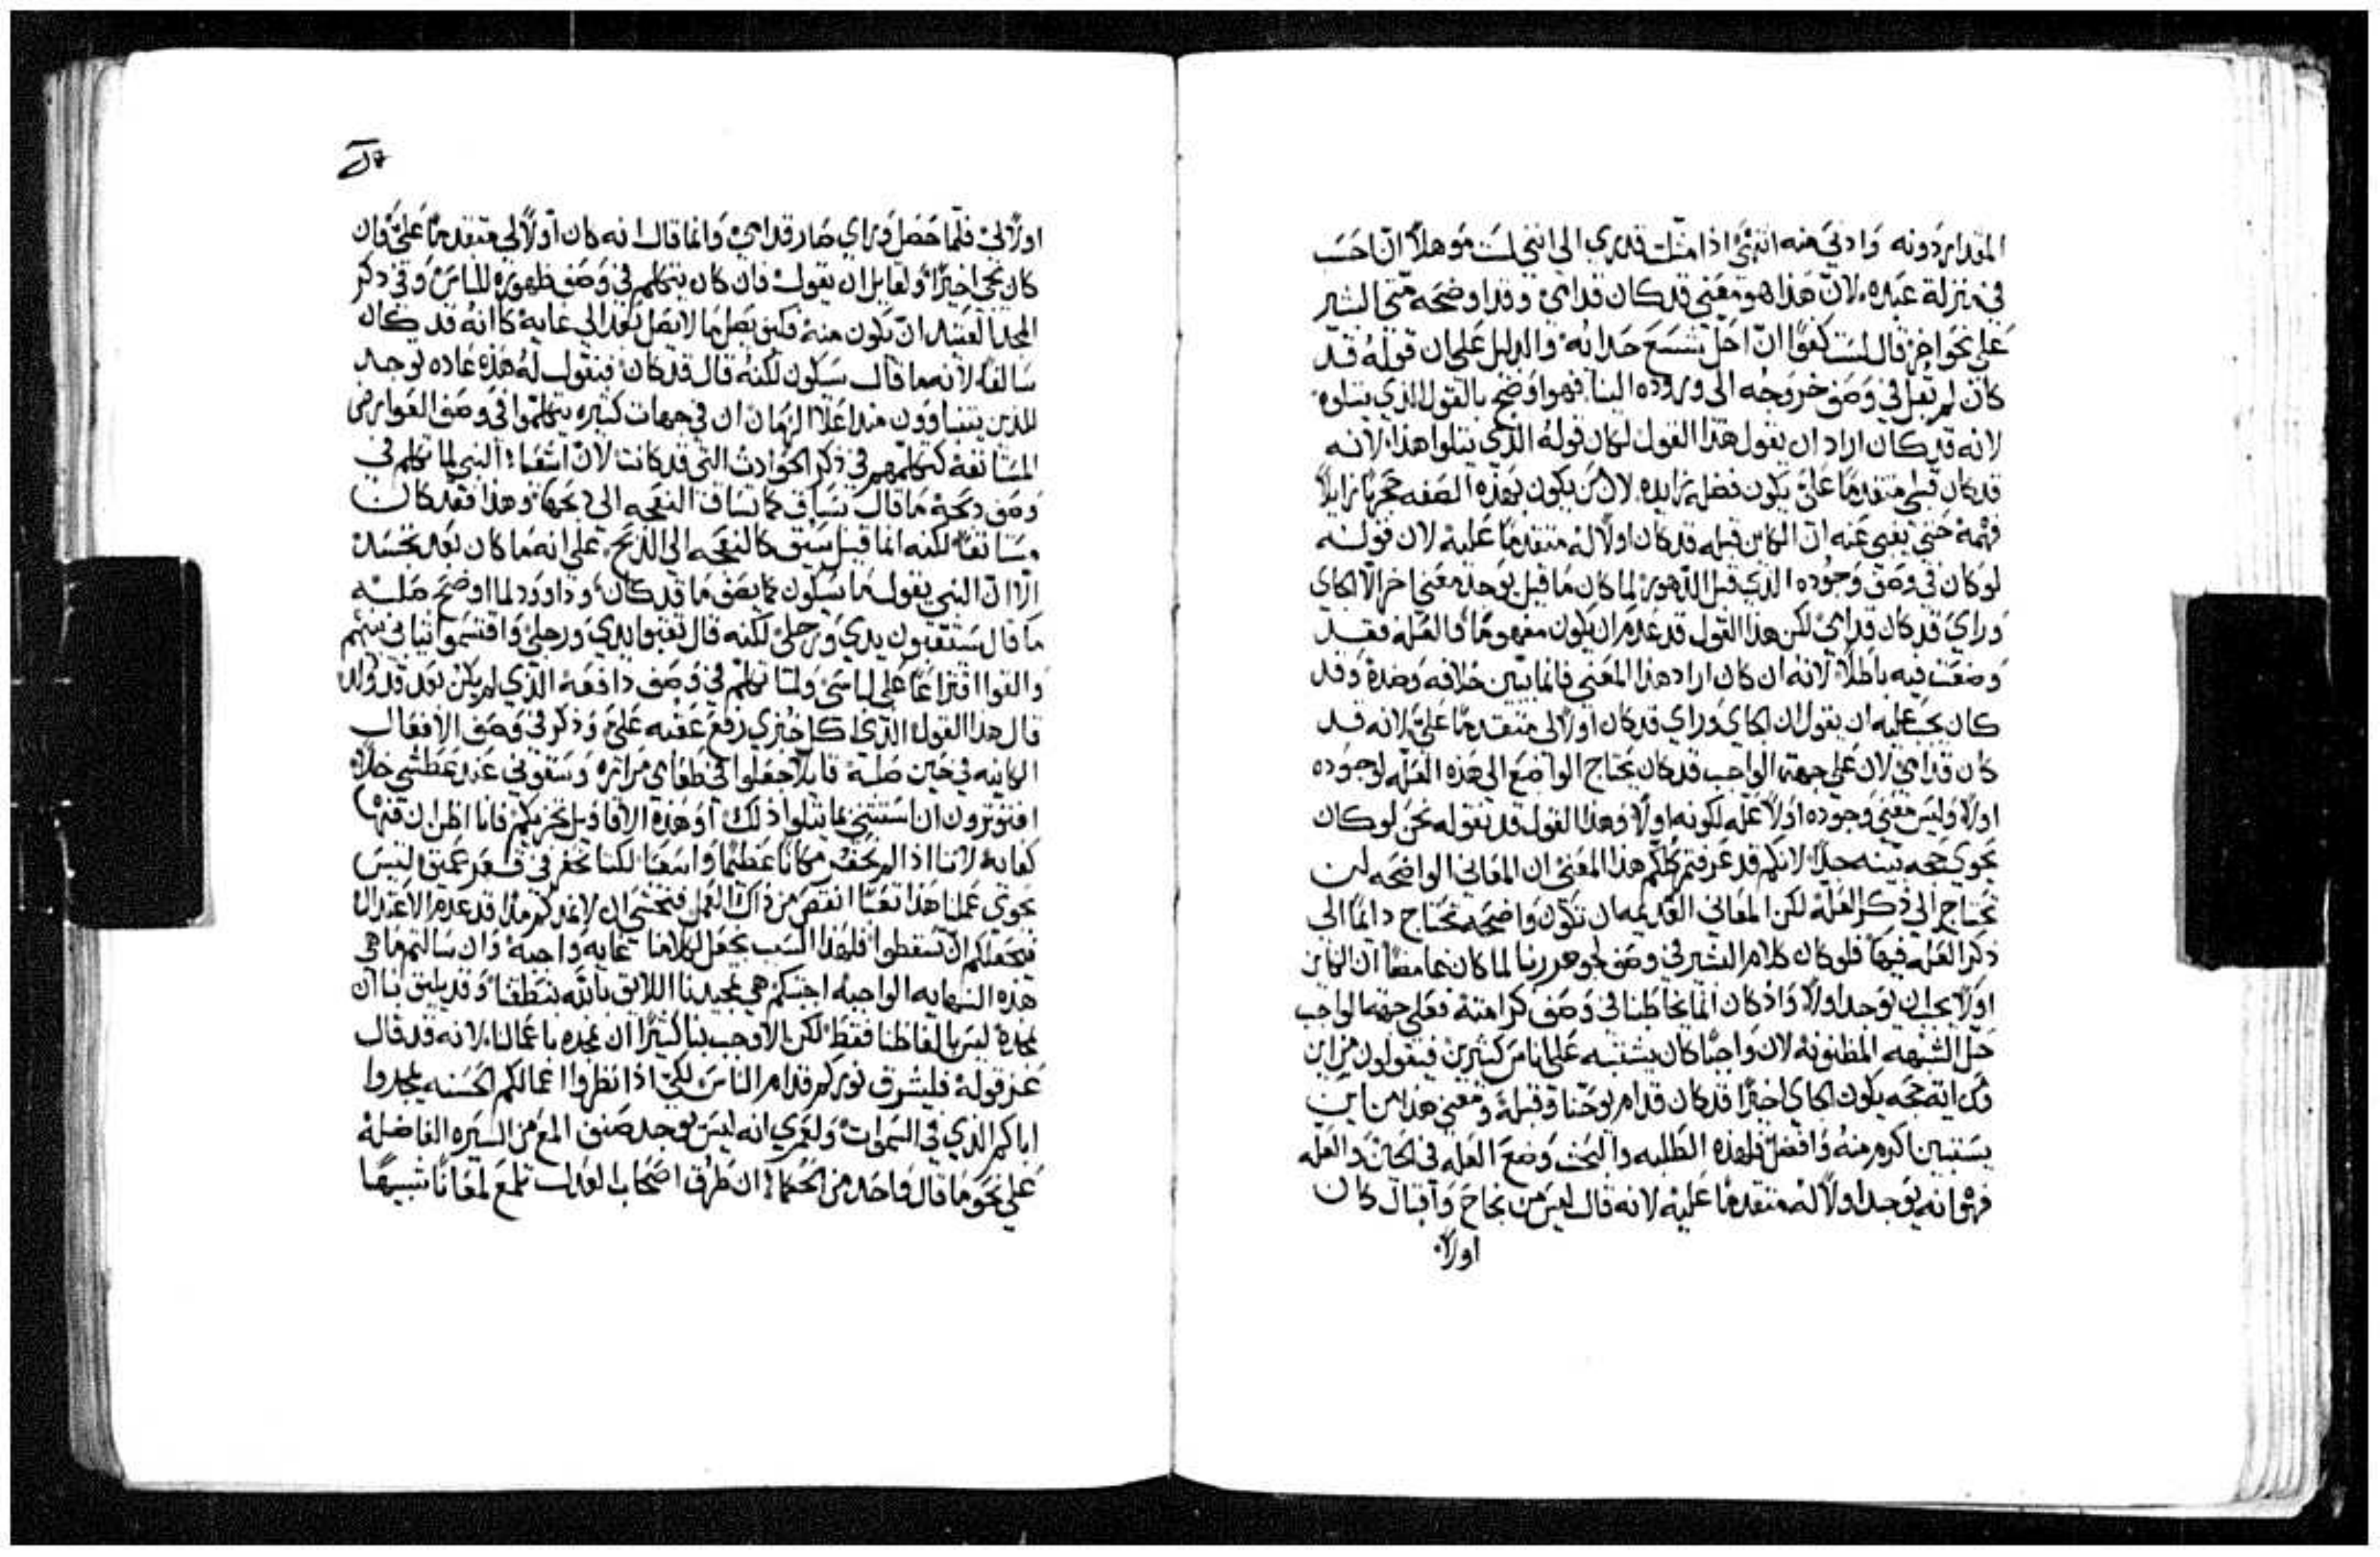 المقدار دونه وادني منه انتهي اذا مثلت قدري الى انني لست موهلا ان احسب
في منزلة عبيده لان هذا هو معني قد كان قدامي وقد اوضحه متى البشير
على نحو اخر قال لست كفوًا ان احل شسع حذائه والدليل على ان قوله قد
كان لم يقل في وصف خروجه الى وروده الينا فهو اوضح بالقول الذي يتلوه
لانه قد كان اراد ان يقول هذا القول لكان قوله الذي يتلوا هذا لانه
قد كان قبلي متقدمًا علىّ يكون فضله زايده لان من يكون بهذه الصفه زايلاً
فهمه حتى يغبى عنه ان الكاين قبله قد كان اولاً له متقدمًا عليه لان قوله
لو كان في وصف وجوده الذي قبل الدهور لما كان ما قيل يوجد معني اخر الا الجاي
وراي قد كان قدامي لكن هذا القول قد عدم ان يكون مفهومًا والعله فقد
وضعت فيه باطلاً لانه ان كان اراد هذا المعني فانما تبين خلافه وضده وقد
كان يجب عليه ان يقول ان الجاي وراي قد كان اولاً لي متقدمًا علىّ لانه قد
كان قدامي لان على جهة الواجب قد كان يحتاج الواضع الى هذه العله لوجوده
اولاً وليس معني وجوده اولاً عله لكونه اولاً وهذا القول قد نقوله نحن لو كان
يحوي حجه بينه جدًا لانكم قد عرفتم كلكم هذا المعني ان المعاني الواضحه لن
تحتاج الى ذكر العله لكن المعاني العديمه ان تكون واضحه تحتاج دايمًا الى
ذكر العله فيها فلو كان كلام البشير في وصف جوهر ربنا لما كان غامضًا ان الكاين
اولاً يجب ان يوجد اولاً واذ كان انما يخاطبنا في وصف كرامته فعلى جهة الواجب
حل الشبهه المظنونه لان واجبًا كان يشتبه على اناس كثيرين فيقولون من اين
وك اية حجه يكون الجاي اخيرًا قد كان قدام يوحنا وقبله ومعني هذا من اين
يستبين اكرم منه وافضل فلهذه الطلبه والبحث وضع العله في الحين والعله
فهي انه يوجد اولاً له متقدمًا عليه لانه قال ليس من نجاح واقبال كان
اولاً
اولاً لي فلما حصل وراي صار قدامي وانما قال انه كان اولاً لي متقدمًا علىّ وان
كان يجي اخيرًا ولقايل ان يقول فان كان يتكلم في وصف ظهوره للناس وفي ذكر
المجد العتيد ان يكون منه فكيف يصل ما لا يصل بعد الى غايه كانه قد كان
سالفًا لانه ما قال سيكون لكنه قال قد كان فنقول له هذه عاده توجد
للذين يتنباوون منذ اعلا الزمان ان في جهات كثيره يتكلموا في وصف العوارض
المستانفه كتكلمهم في ذكر الحوادث التي قد كانت لان اشعيا النبي لما تكلم في
وصف ذبحه ما قال يساق كما تساق النعجه الى ذبحها وهذا فقد كان
مستانفًا لكنه انما قيل سيق كالنعجه الى الذبح على انه ما كان بعد تجسد
الا ان النبي يقول ما سيكون كما يصف ما قد كان وداوود لما اوضح صلبه
ما قال ستثقبون يدي ورجلي لكنه قال ثقبوا يدي ورجلي واقتسموا ثيابي بينهم
والقوا اقتراعًا على لباسي ولما تكلم في وصف دافعه الذي لم يكن بعد قد ولد
قال هذا القول الذي اكل خبزي رفع عقبه علىّ وذكر في وصف الافعال
الكاينه في حين صلبه قايلا جعلوا في طعامي مراره وسقوني عند عطشي خلاً
افتوثرون ان استثني بما يتلوا ذلك او هذه الاقاويل تجزيكم فانا اظن ان فيها
كفايه لاننا اذا لم نحفر مكانًا عظيمًا واسعًا لكننا نحفر في قعر عميق ليس
يحوي عملنا هذا تعبًا انقص من ذاك العمل فنخشى ان لا نمدكم مدًا قد عدم الاعتدال
فنجعلكم ان تسقطوا فلهذا السبب نجعل لكلامنا غايه واجبه وان سالتم ما هي
هذه النهايه الواجبه اجبتكم هي تمجيدنا اللايق بالله بنطقنا وقد يليق بنا ان
نمجده ليس بالفاظنا فقط لكن الاوجب بنا كثيرًا ان نمجده باعمالنا لانه قد قال
عز قوله فليشرق نوركم قدام الناس لكي اذا نظروا اعمالكم الحسنه يمجدوا
اباكم الذي في السموات ولعمري انه ليس يوجد صنف المع من السيره الفاضله
على نحو ما قال واحد من الحكما ان طرق اصحاب العدل تلمع لمعانًا شبيهًا